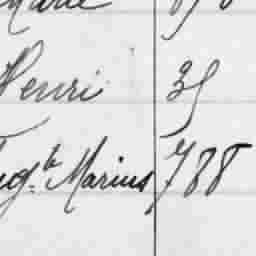 Marie
Henri 35
Aug.te Marius 788